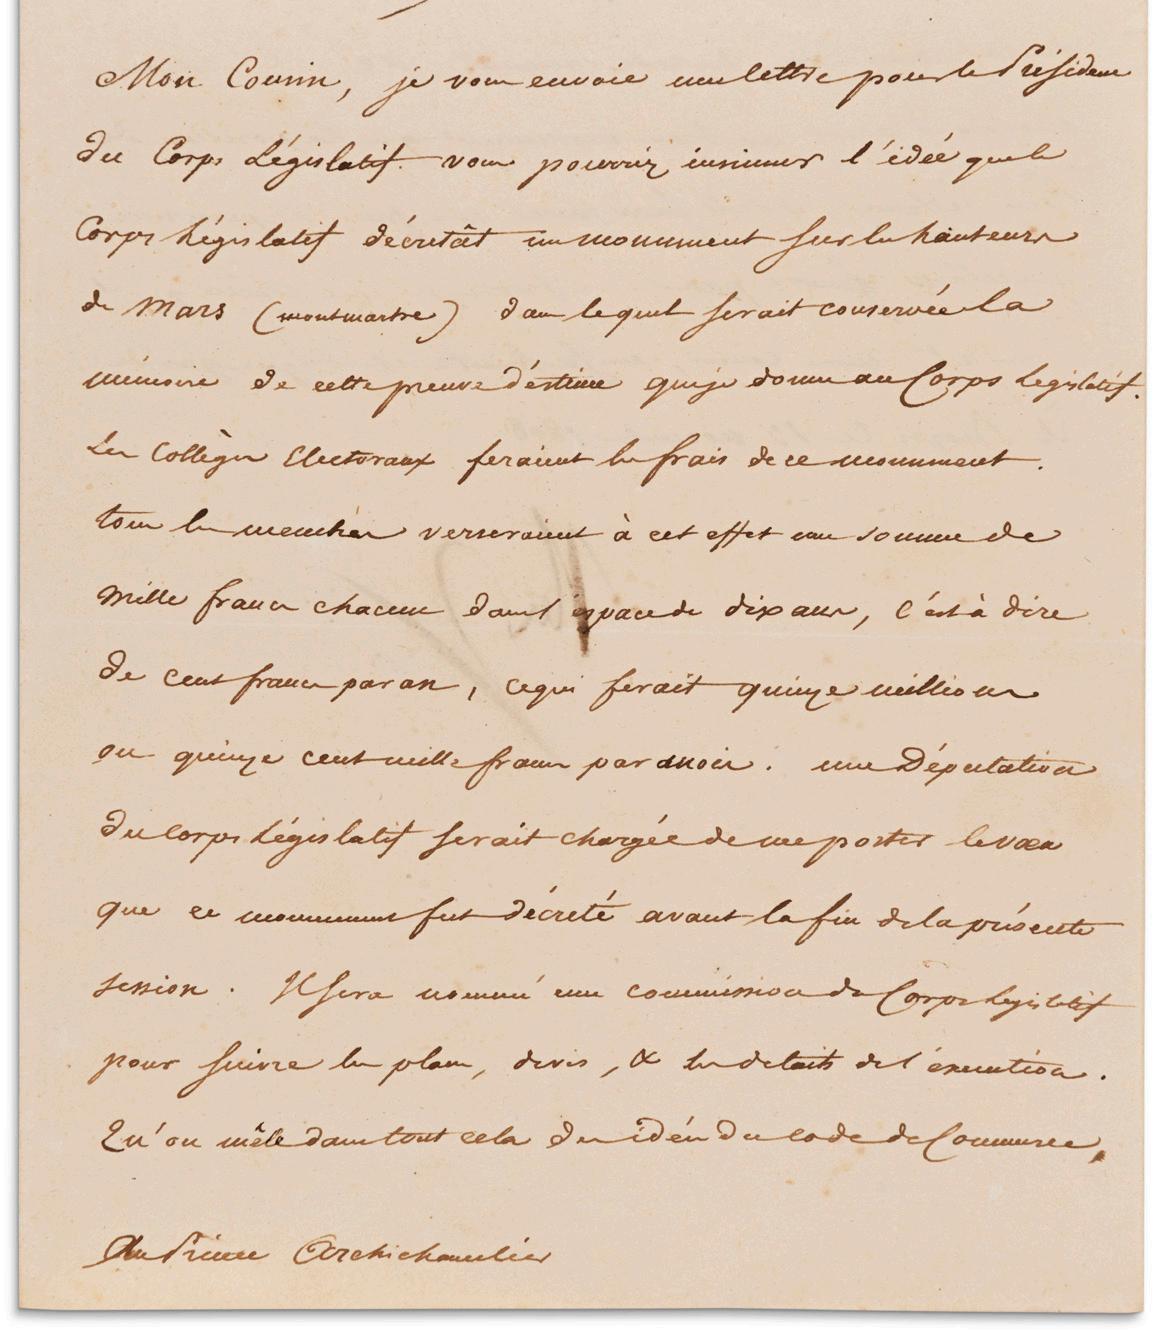 Mon Cousin, je vous envoie une lettre pour le Président
du Corps Législatif. vous pourriez insinuer l'idée que le
Corps Législatif décretât un monument sur les hauteurs
de Mars (montmartre) dans lequel serait conservée la
mémoire de cette preuve d'estime que je donne au Corps Législatif.
Les Collèges Electoraux feraient les frais de ce monument.
tous les membres verseraient à cet effet une somme de
Mille francs chacun dans l'espace de dix ans, c'est à dire
de cent francs par an, ce qui ferait quinze millions
ou quinze cent mille francs par an. une Députation
du corps Législatif serait chargée de me porter le vœu
que ce monument fut décreté avant la fin de la présente
session. Il sera nommé une commission du Corps Législatif
pour suivre les plans, devis, & les details de l'éxecution.
Qu'on mêle dans tout cela des idées du code de Commerce,
Au Prince Archichancelier